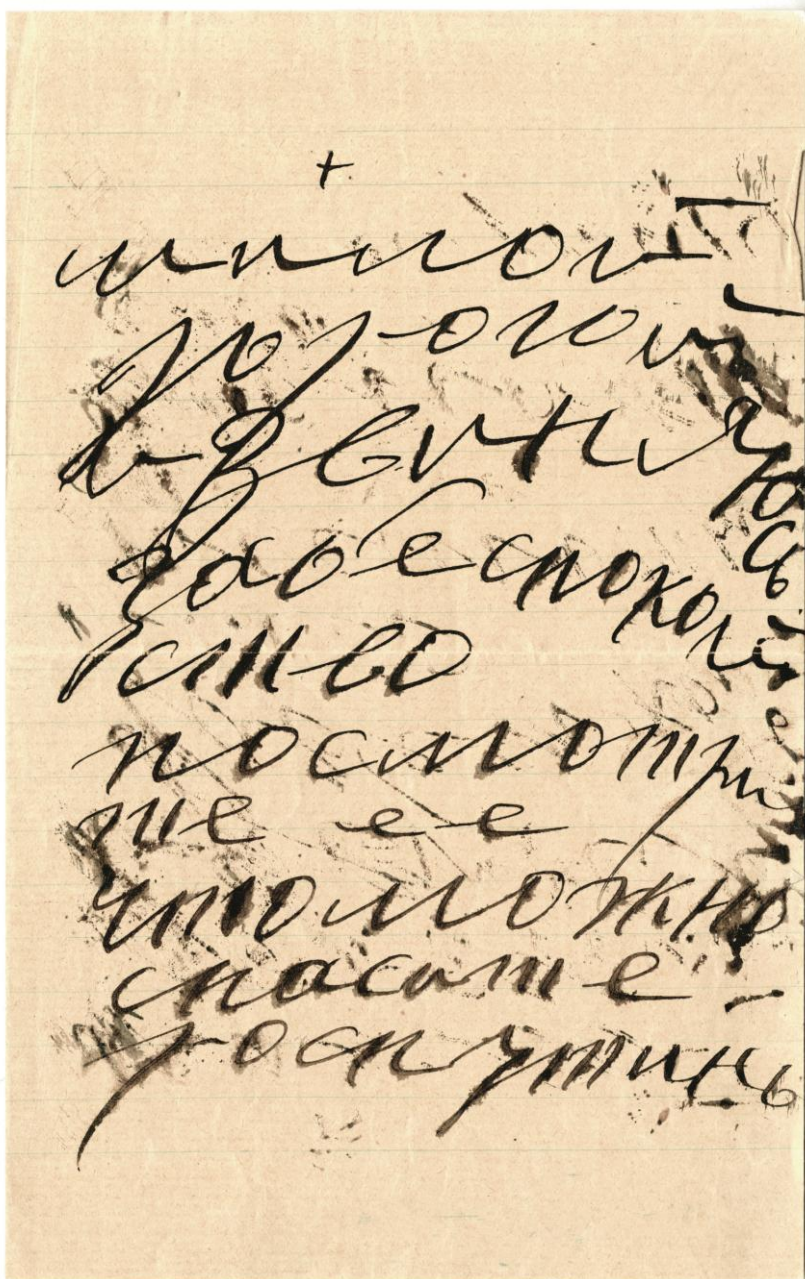 +
милой
дорогой
азвиняюсь
забеспокой
ства
посмотри
те ее
что можно
спасите
роспутинь